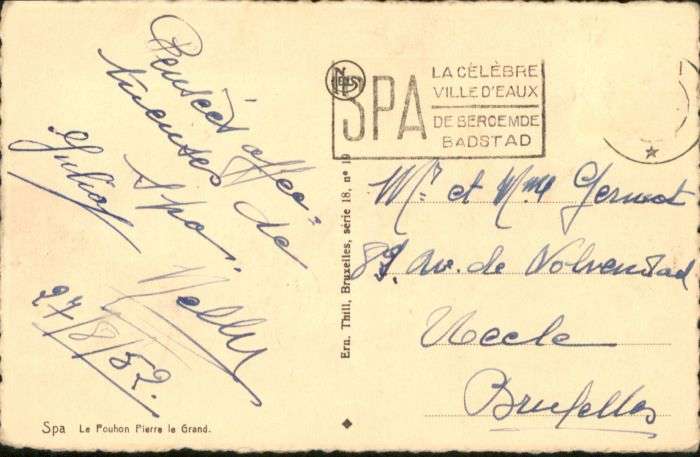 Pensées affec=
tueuses de
Spa.
Julia
Nelly
27/8/52.
Spa Le Pouhon Pierre le Grand.
Ern. Thill, Bruxelles, série 18, nº 19
NELS
SPA
LA CÉLÈBRE
VILLE D'EAUX
DE BEROEMDE
BADSTAD
Mr et Mme Gernot
89, Av. de Wolvendael
Uccle
Bruxelles